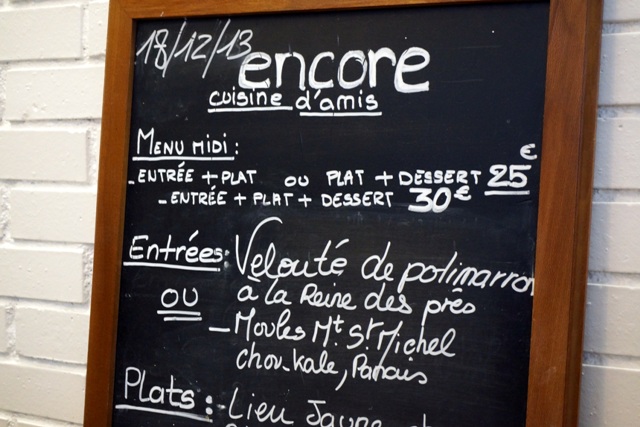 18/12/13
encore
cuisine d'amis
MENU MIDI :
- ENTRÉE + PLAT OU PLAT + DESSERT 25€
- ENTRÉE + PLAT + DESSERT 30€
Entrées: Velouté de potimarron
OU à la Reine des prés
- Moules Mt St Michel
chou-kale, Panais
Plats: Lieu Jaune